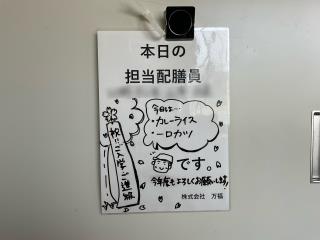 本日の
担当配膳員
今日は…
・カレーライス
・一口カツ
です。
今年度もよろしくお願いします!!
祝!!ご入学・ご進級
株式会社 万福